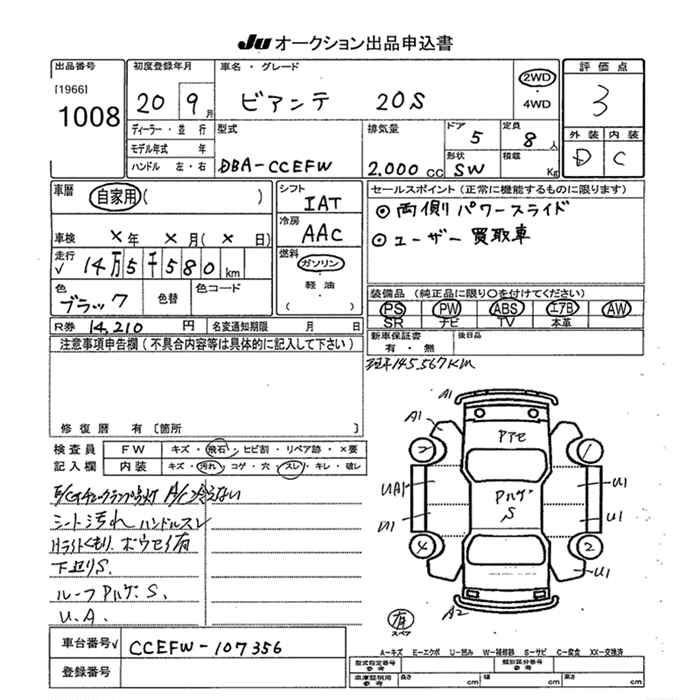 Ju オークション出品申込書
出品番号
[1966]
1008
初度登録年月
20 9月
車名・グレード
ビアンテ 20S
2WD
4WD
評価点
3
外装 内装
D C
ディーラー・並行
モデル年式 年
ハンドル 左・右
型式
DBA-CCEFW
排気量
2.000 CC
ドア
5
形状
SW
定員
8人
積載
Kg
車歴 自家用( )
車検 ×年 ×月(×日)
走行
√ 14万5千580km
色
ブラック
色替
色コード
シフト
IAT
冷房
AAC
燃料
ガソリン
・
軽油
( )
セールスポイント(正常に機能するものに限ります)
◎両側パワースライド
◎ユーザー買取車
装備品 (純正品に限り○を付けてください)
PS PW ABS エアB AW
SR ナビ TV 本革
R券 14,210 円 名変通知期限 月 日
新車保証書
有・無
後日品
注意事項申告欄(不具合内容等は具体的に記入して下さい)
145,567KM
修復歴 有〔箇所
検査員
記入欄
FW キズ・飛石・ヒビ割・リペア跡・×要
内装 キズ・汚れ・コゲ・穴・スレ・キレ・破レ
E/Gチェックランプ点灯 A/C冷えない
シート汚れ ハンドルスレ
Hライトくもり、ボウセイ有
下廻りS.
ルーフPハゲ、S、
U.A.
A1
A1
Pアセ
2
1
UA1
U1
PハゲS
U1
U1
4
2
U1
A2
有
スペア
車台番号√ CCEFW-107356
登録番号
A-キズ E-エクボ U-凹み W-補修跡 S-サビ C-腐食 XX-交換済
型式指定番号
参考
類別区分番号
参考
車庫証明用
参考
長さ cm 幅 cm 高さ cm